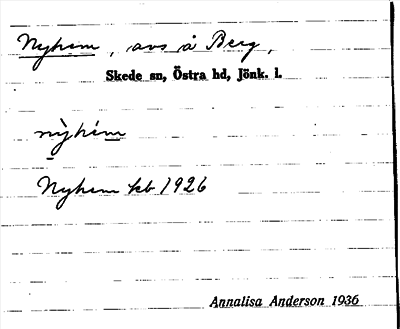 Nyhem, avs å Berg,
Skede sn, Östra hd, Jönk. l.
nỳhém
Nyhem kb 1926
Annalisa Anderson 1936